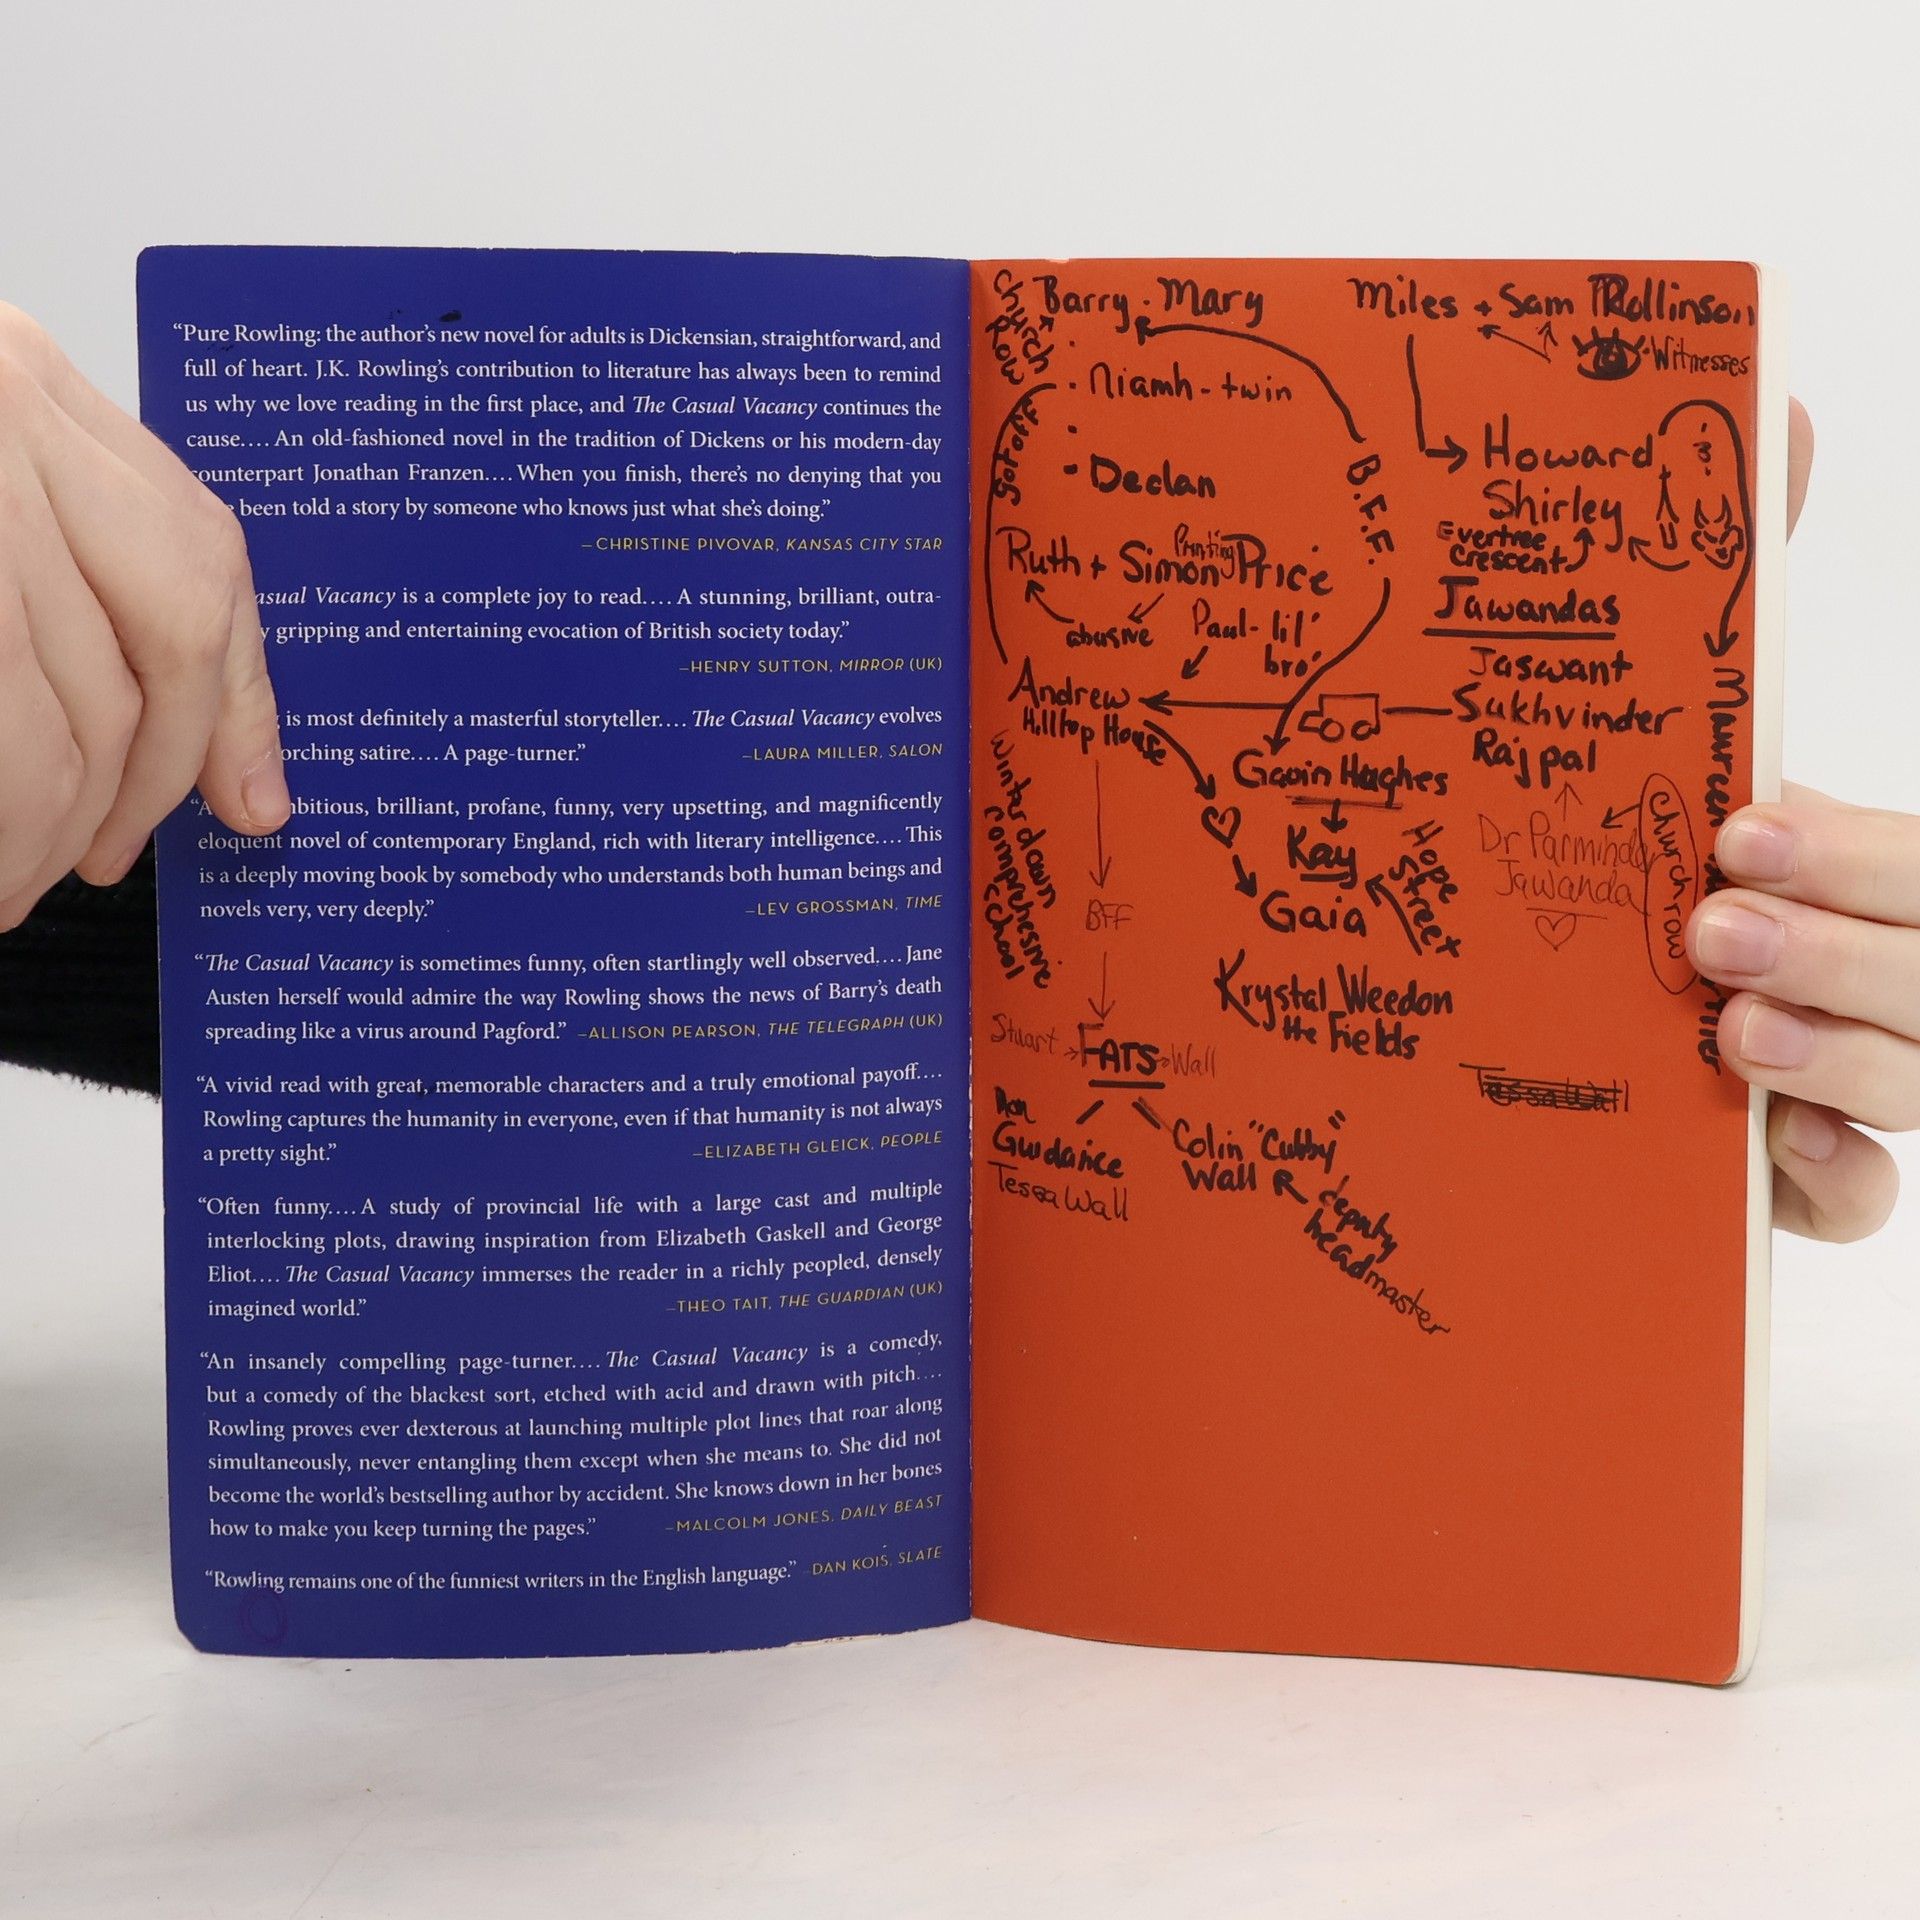 “Pure Rowling: the author’s new novel for adults is Dickensian, straightforward, and
full of heart. J.K. Rowling’s contribution to literature has always been to remind
us why we love reading in the first place, and The Casual Vacancy continues the
cause.... An old-fashioned novel in the tradition of Dickens or his modern-day
counterpart Jonathan Franzen.... When you finish, there’s no denying that you
been told a story by someone who knows just what she’s doing.”
–CHRISTINE PIVOVAR, KANSAS CITY STAR
asual Vacancy is a complete joy to read.... A stunning, brilliant, outra-
y gripping and entertaining evocation of British society today.”
–HENRY SUTTON, MIRROR (UK)
is most definitely a masterful storyteller.... The Casual Vacancy evolves
orching satire.... A page-turner.”
–LAURA MILLER, SALON
“A mbitious, brilliant, profane, funny, very upsetting, and magnificently
eloquent novel of contemporary England, rich with literary intelligence.... This
is a deeply moving book by somebody who understands both human beings and
novels very, very deeply.”
–LEV GROSSMAN, TIME
“The Casual Vacancy is sometimes funny, often startlingly well observed.... Jane
Austen herself would admire the way Rowling shows the news of Barry’s death
spreading like a virus around Pagford.” –ALLISON PEARSON, THE TELEGRAPH (UK)
“A vivid read with great, memorable characters and a truly emotional payoff....
Rowling captures the humanity in everyone, even if that humanity is not always
a pretty sight.”
–ELIZABETH GLEICK, PEOPLE
“Often funny.... A study of provincial life with a large cast and multiple
interlocking plots, drawing inspiration from Elizabeth Gaskell and George
Eliot.... The Casual Vacancy immerses the reader in a richly peopled, densely
imagined world.”
–THEO TAIT, THE GUARDIAN (UK)
“An insanely compelling page-turner.... The Casual Vacancy is a comedy,
but a comedy of the blackest sort, etched with acid and drawn with pitch....
Rowling proves ever dexterous at launching multiple plot lines that roar along
simultaneously, never entangling them except when she means to. She did not
become the world’s bestselling author by accident. She knows down in her bones
how to make you keep turning the pages.”
–MALCOLM JONES, DAILY BEAST
“Rowling remains one of the funniest writers in the English language.” DAN KOIS, SLATE
Church Row
Barry · Mary
Niamh - twin
Declan
B.F.F.
Ruth + Simon Price
Printing
abusive
Paul - lil'
bro'
Andrew
Hilltop House
Winterdown
comprehesive
school
BFF
Stuart
FATS
Wall
Mon
Guidance
Tessa Wall
Colin "Cubby"
Wall R
deputy
headmaster
Miles + Sam Mollinson
Witnesses
Howard
Shirley
Evertree
Crescent
Jawandas
Jaswant
Sukhvinder
Rajpal
Gavin Hughes
Kay
Hope
Street
Gaia
Dr Parminder
Jawanda
Church row
Krystal Weedon
the Fields
Tessa Wall
Maureen